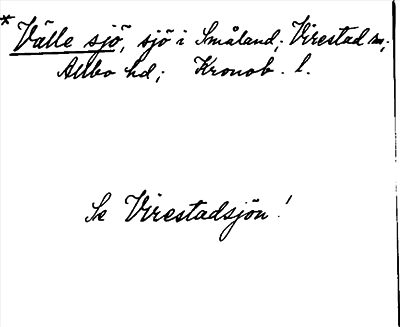 * Välle sjö, sjö i Småland; Virestad sn;
Allbo hd; Kronob. l.
Se Virestadsjön!